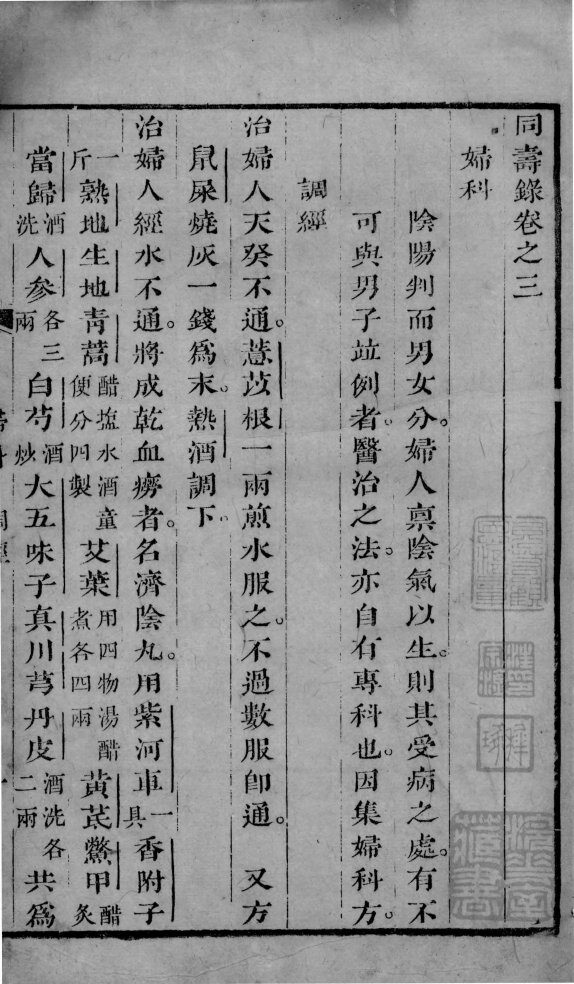 同壽錄卷之三
婦科
陰陽判而男女分。婦人稟陰氣以生。則其受病之處。有不
可與男子竝例者。醫治之法。亦自有專科也。因集婦科方。
調經
治婦人天癸不通。薏苡根一兩煎水服之。不過數服卽通。 又方
鼠屎燒灰一錢爲末。熱酒調下。
治婦人經水不通。將成乾血癆者。名濟陰丸。用紫河車一具香附子
一斤熟地生地靑蒿醋塩水酒童便分四製艾葉用四物湯醋煮各四兩黃芪鱉甲醋炙
當歸酒洗人參各三兩白芍酒炒大五味子真川芎丹皮酒洗各二兩共爲